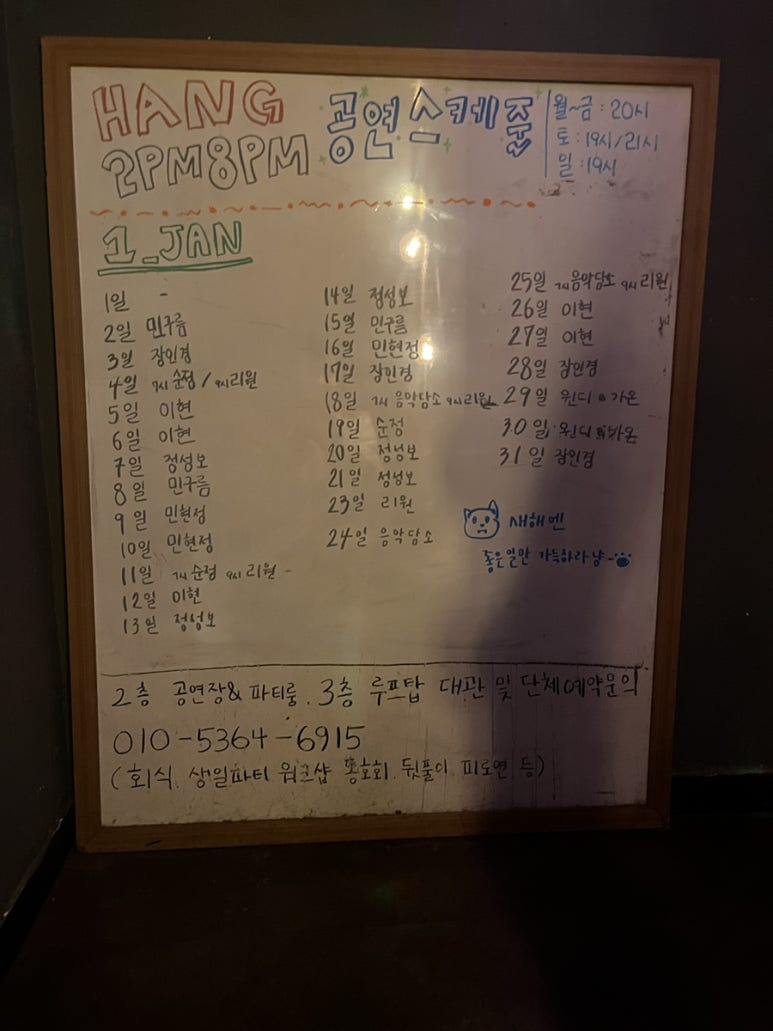 HANG
2PM8PM
공연스케줄
월~금 : 20시
토 : 19시/21시
일 : 19시
1_JAN
1일 -
2일 민구름
3일 장인경
4일 7시 순정 / 9시 리원
5일 이현
6일 이현
7일 정성보
8일 민구름
9일 민현정
10일 민현정
11일 7시 순정 9시 리원 -
12일 이현
13일 정성보
14일 정성보
15일 민구름
16일 민현정
17일 장인경
18일 7시 음악담소 9시 리원
19일 순정
20일 정성보
21일 정성보
23일 리원
24일 음악담소
25일 7시 음악담소 9시 리원
26일 이현
27일 이현
28일 장인경
29일 윈디 가온
30일 윈디 가온
31일 장인경
새해엔
좋은일만 가득하라냥~
2층 공연장& 파티룸. 3층 루프탑 대관 및 단체예약문의
010-5364-6915
(회식. 생일파티 워크샵 동호회. 뒷풀이. 피로연 등)